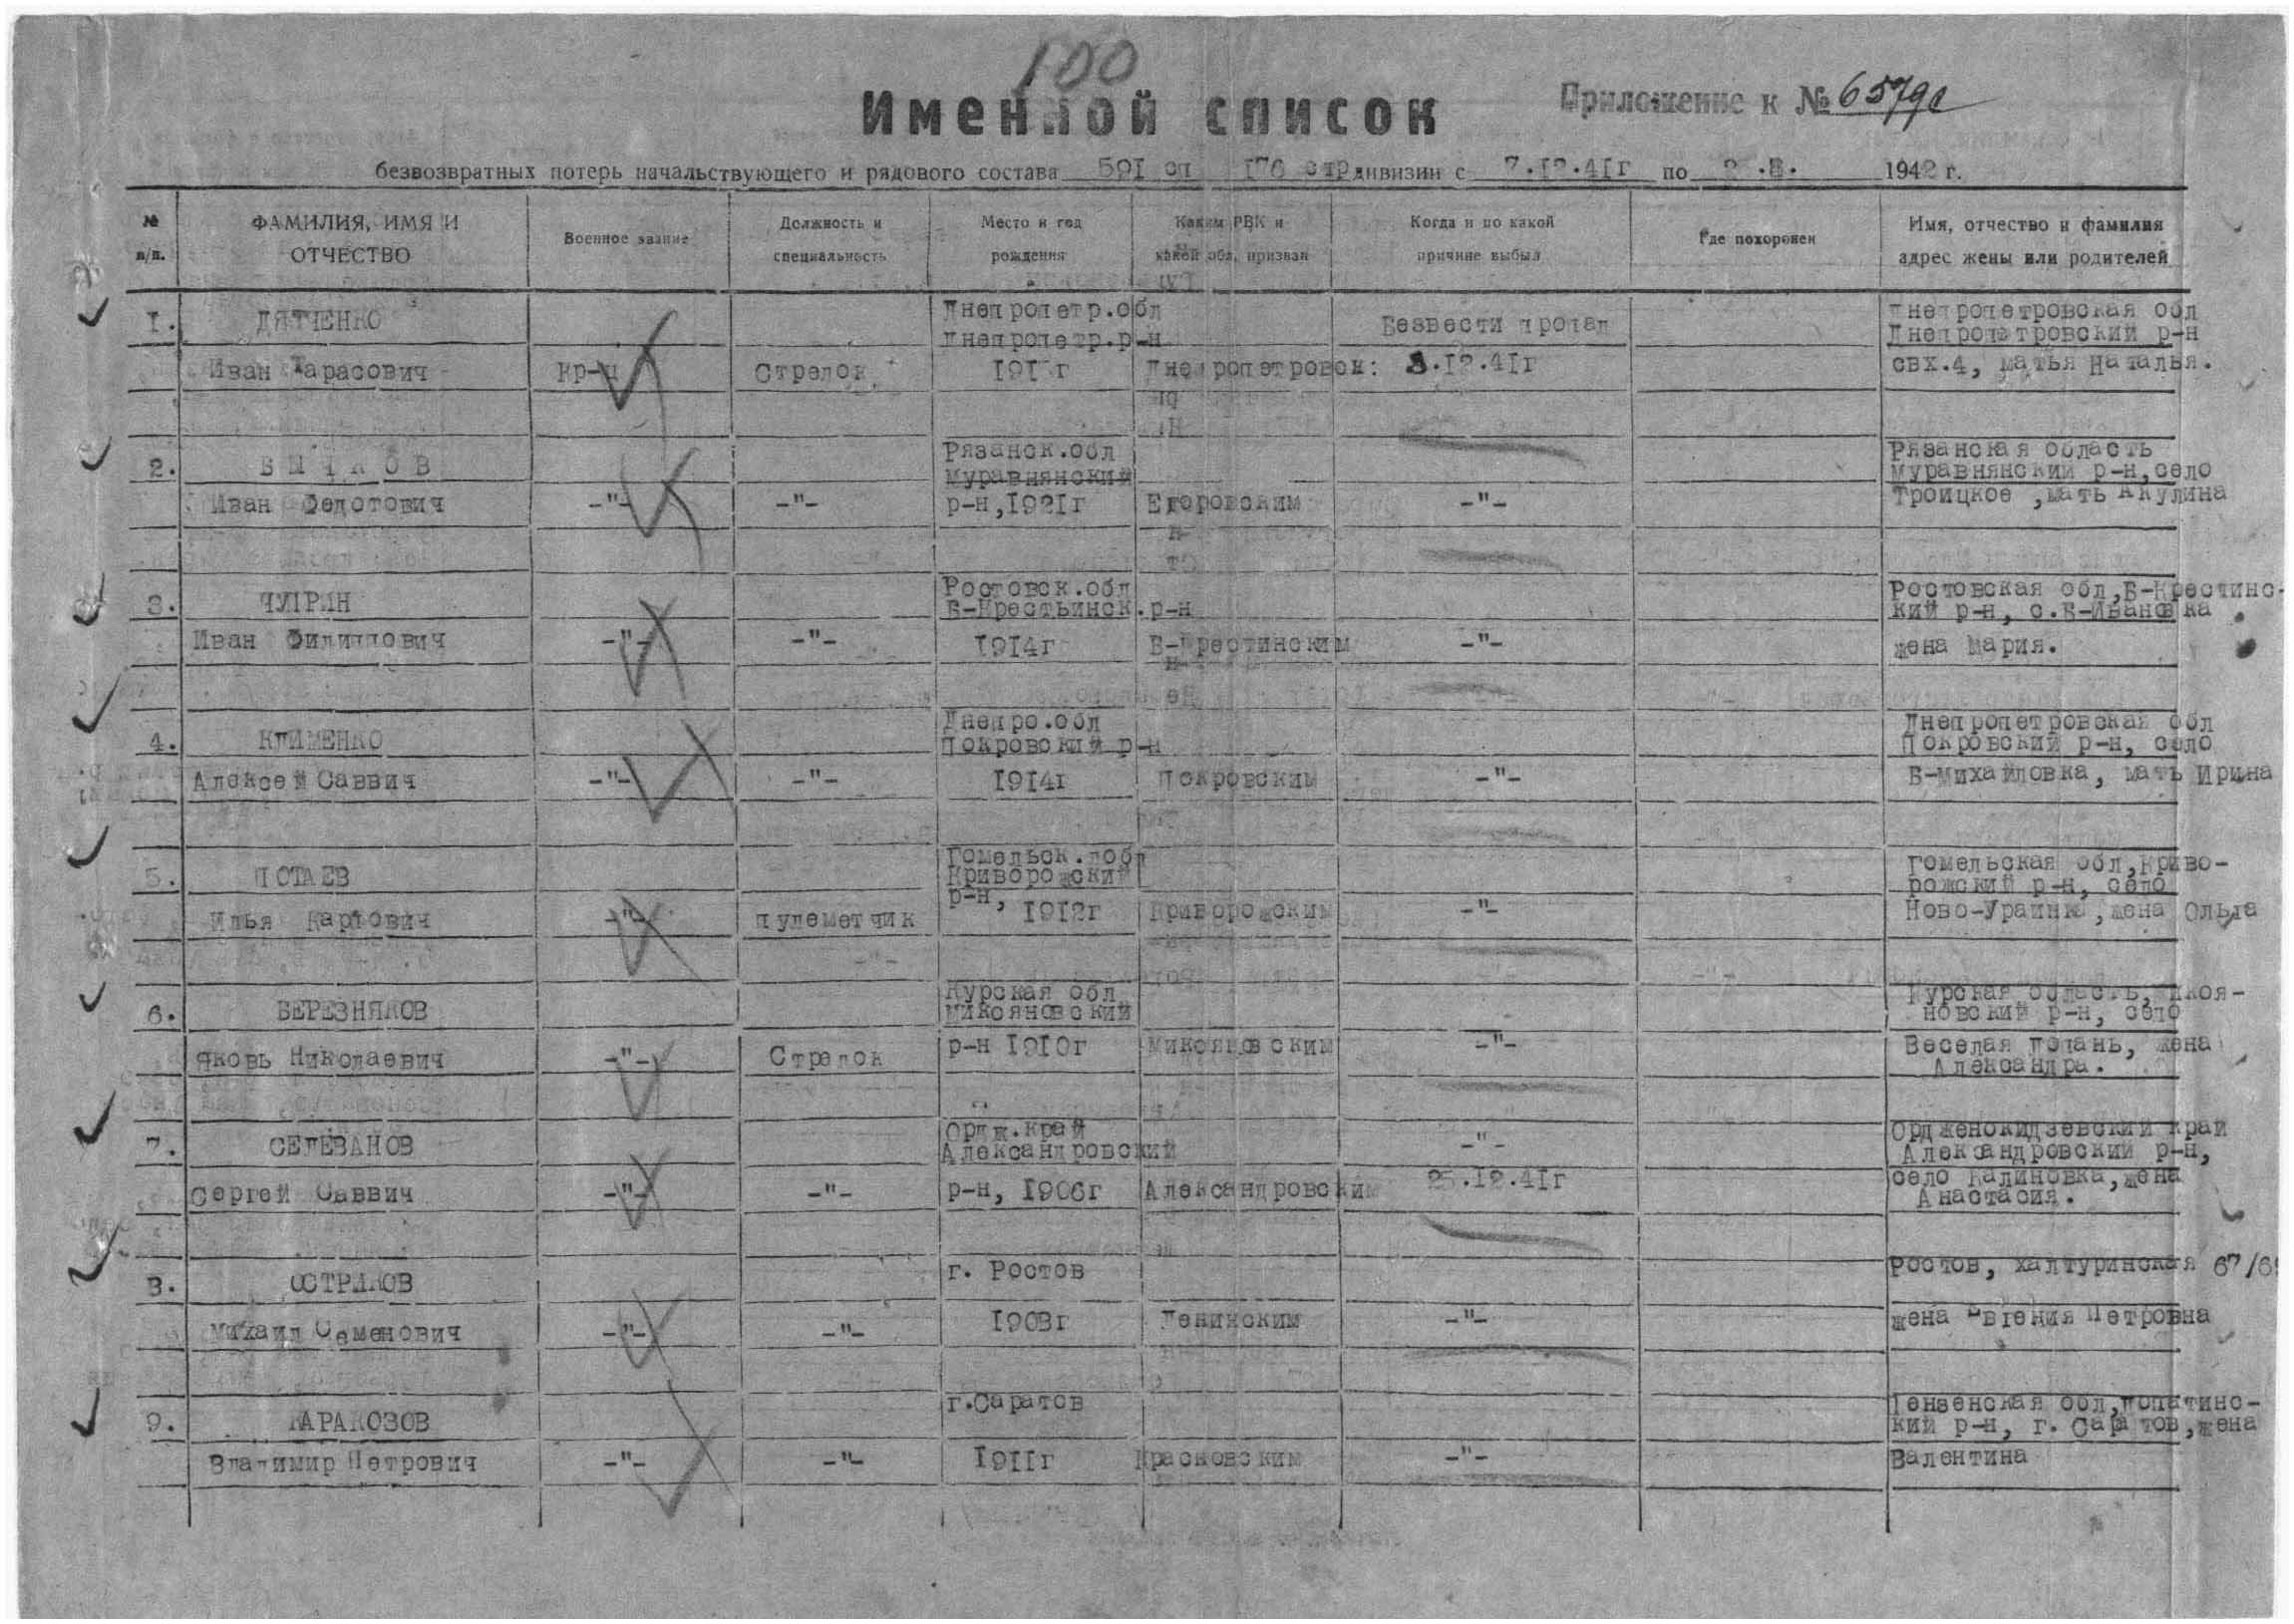 100
Именной список
Приложение к № 6579с
безвозвратных потерь начальствующего и рядового состава 591 сп 176 стр дивизии с 7.12.41г по 1942 г.
№ п/п.
ФАМИЛИЯ, ИМЯ И ОТЧЕСТВО
Военное звание
Должность и специальность
Место и год рождения
Каким РВК и какой обл. призван
Когда и по какой причине выбыл
Где похоронен
Имя, отчество и фамилия адрес жены или родителей
Днепропетр.обл Днепропетровская обл
1. ДЯТЧЕНКО Днепропетр.р-н Безвести пропал Днепропетровский р-н
Иван Тарасович кр-ц Стрелок Днепропетровск: 8.12.41г свх.4, матья Наталья.
Рязанск.обл Рязанская область
2. БЫЧКОВ Муравнянский Муравнянский р-н,село
Иван Федотович -"- -"- р-н,1921г Егоровским -"- Троицкое ,мать Акулина
Ростовск.обл Ростовская обл,Б-Крестинс-
3. ЧУПРИН Б-Крестьинск.р-н кий р-н, с.Б-Ивановка
Иван Филиппович -"- -"- 1914г Б-Крестинским -"- жена Мария.
Днепро.обл Днепропетровская обл
4. КЛИМЕНКО Покровский р-н Покровский р-н, село
Алексей Саввич -"- -"- 1914г Покровским -"- Б-Михайловка, мать Ирина
Гомельск. Гомельская обл,Криво-
5. ПОТАЕВ Криворожский рожский р-н, село
Илья Карпович -"- пулеметчик р-н, 1912г Криворожским -"- Ново-Украинка,жена Ольга
Курская обл Курская область, Микоя-
6. БЕРЕЗНЯКОВ Микояновский новский р-н, село
Яковь Николаевич -"- Стрелок р-н 1910г Микояновским -"- Веселая Лопань, жена
Александра.
Ордж.край Орджено­кидзевский край
7. СЕЛЕВАНОВ Александровский -"- Александровский р-н,
Сергей Саввич -"- -"- р-н, 1906г Александровским 25.12.41г село Калиновка,жена
Анастасия.
8. ОСТРИКОВ г. Ростов Ростов, халтуринская
Михаил Семенович -"- -"- 1903г Ленинским -"- жена Евгения Петровна
г.Саратов Пензенская обл,Лопатинс-
9. КАРАКОЗОВ кий р-н, г. Саратов,жена
Владимир Петрович -"- -"- 1911г Красновским -"- Валентина